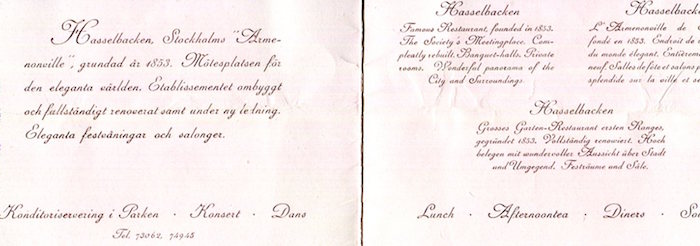 Hasselbacken, Stockholms "Arme-
nonville", grundad år 1853. Mötesplatsen för
den eleganta världen. Etablissementet ombyggt
och fullständigt renoverat samt under ny ledning.
Eleganta festvåningar och salonger.
Konditoriservering i Parken · Konsert · Dans
Tel. 73062, 74945
Hasselbacken
Famous Restaurant, founded in 1853.
The Society's Meetingplace. Com-
pleatly rebuilt. Banquet-halls. Private
rooms. Wonderful panorama of the
City and Surroundings.
Hasselbacken
L'Armenonville de
fondé en 1853. Endroit de
du monde élégant. Entièrem
neuf. Salles de fête et salons p
splendide sur la ville et se
Hasselbacken
Grosses Garten-Restaurant ersten Ranges,
gegründet 1853. Vollständig renowiert. Hoch
belegen mit wundervoller Aussicht über Stadt
und Umgegend. Festräume und Säle.
Lunch · Afternoontea · Diners · So